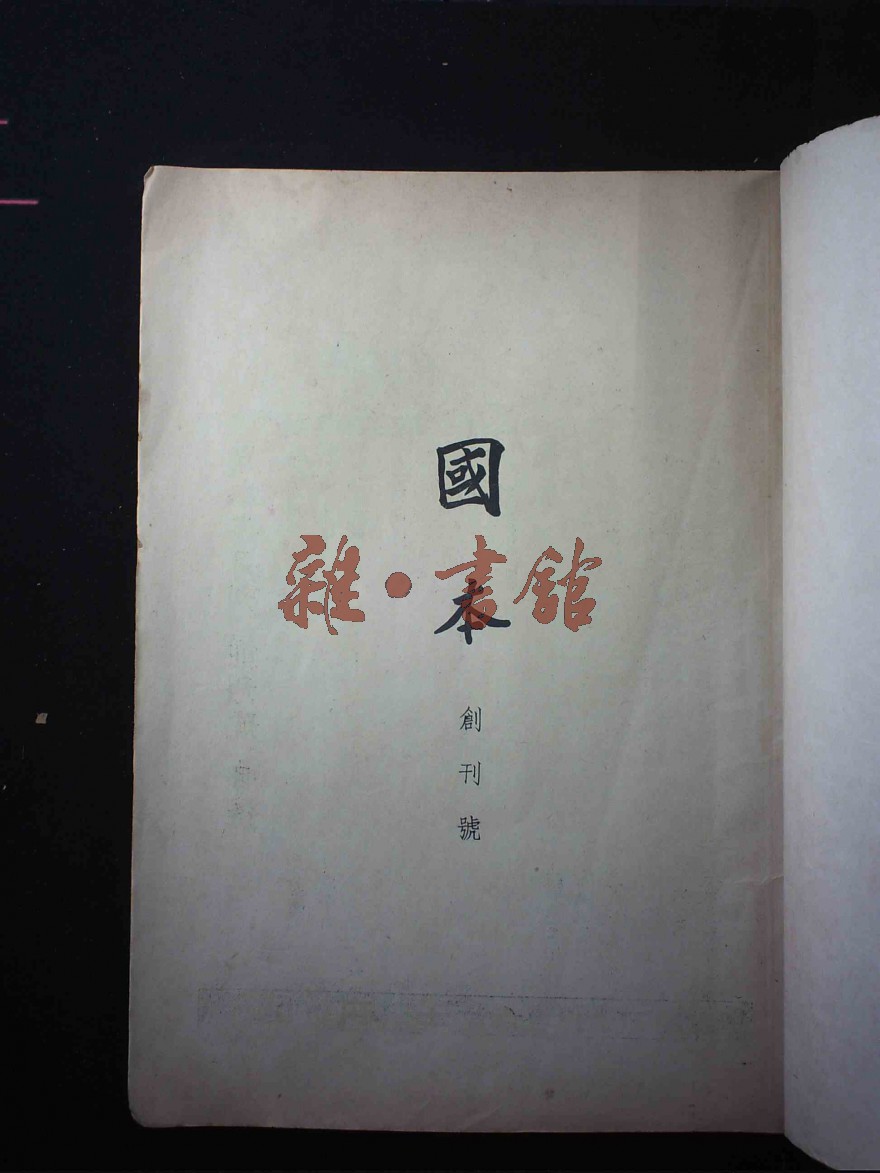 國本
創刊號
雜·書館